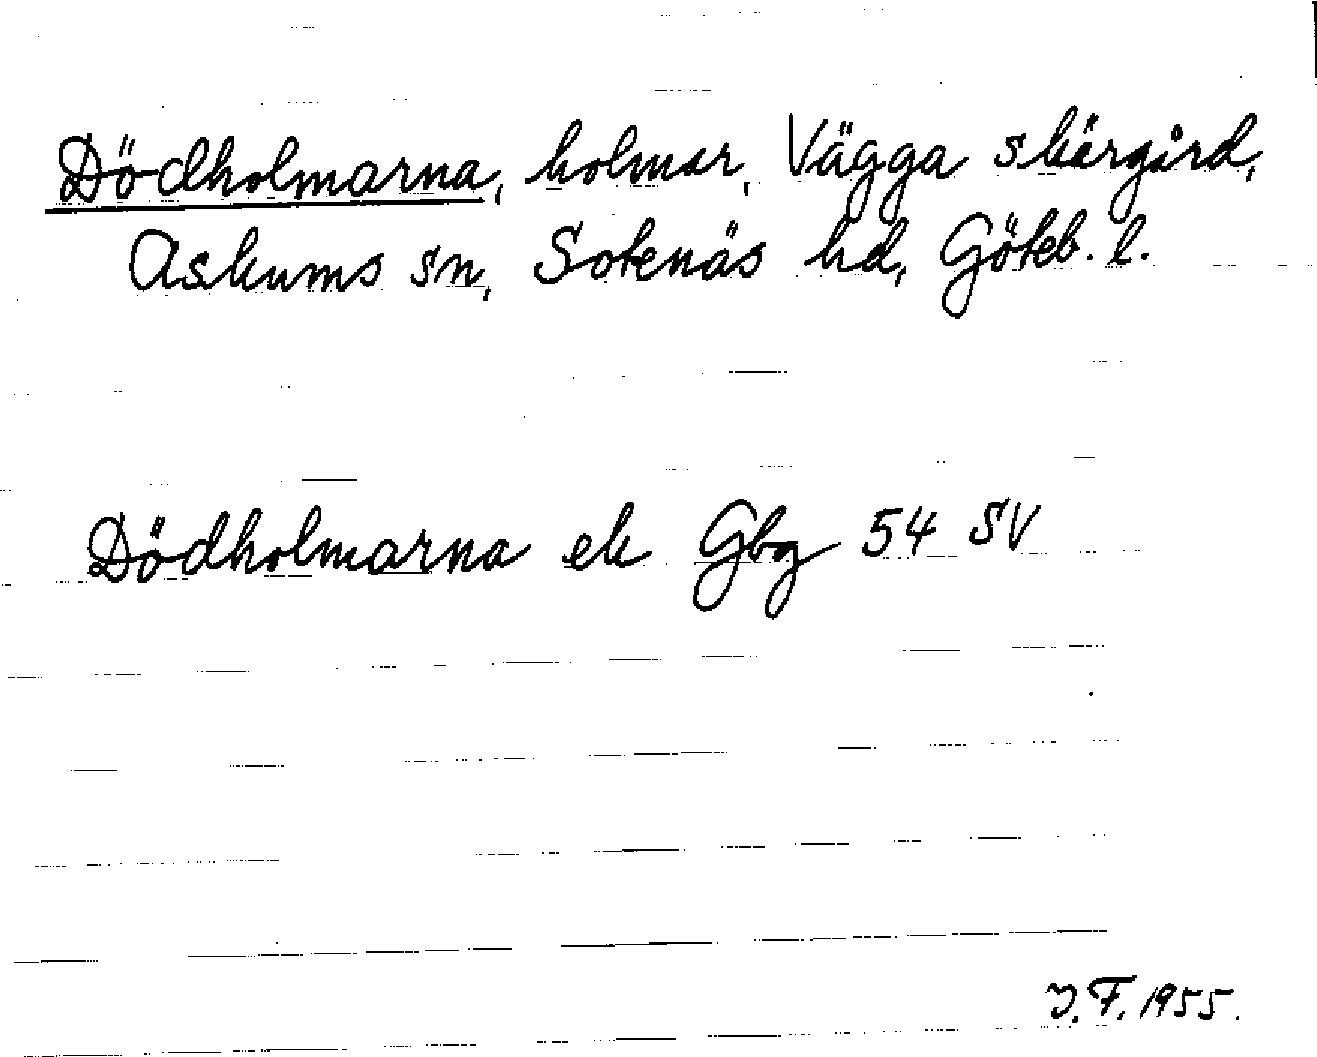 Dödholmarna, holmar, Vägga skärgård,
Askums sn, Sotenäs hd, Göteb. l.
Dödholmarna ek Gbg 54 SV
J.F. 1955.